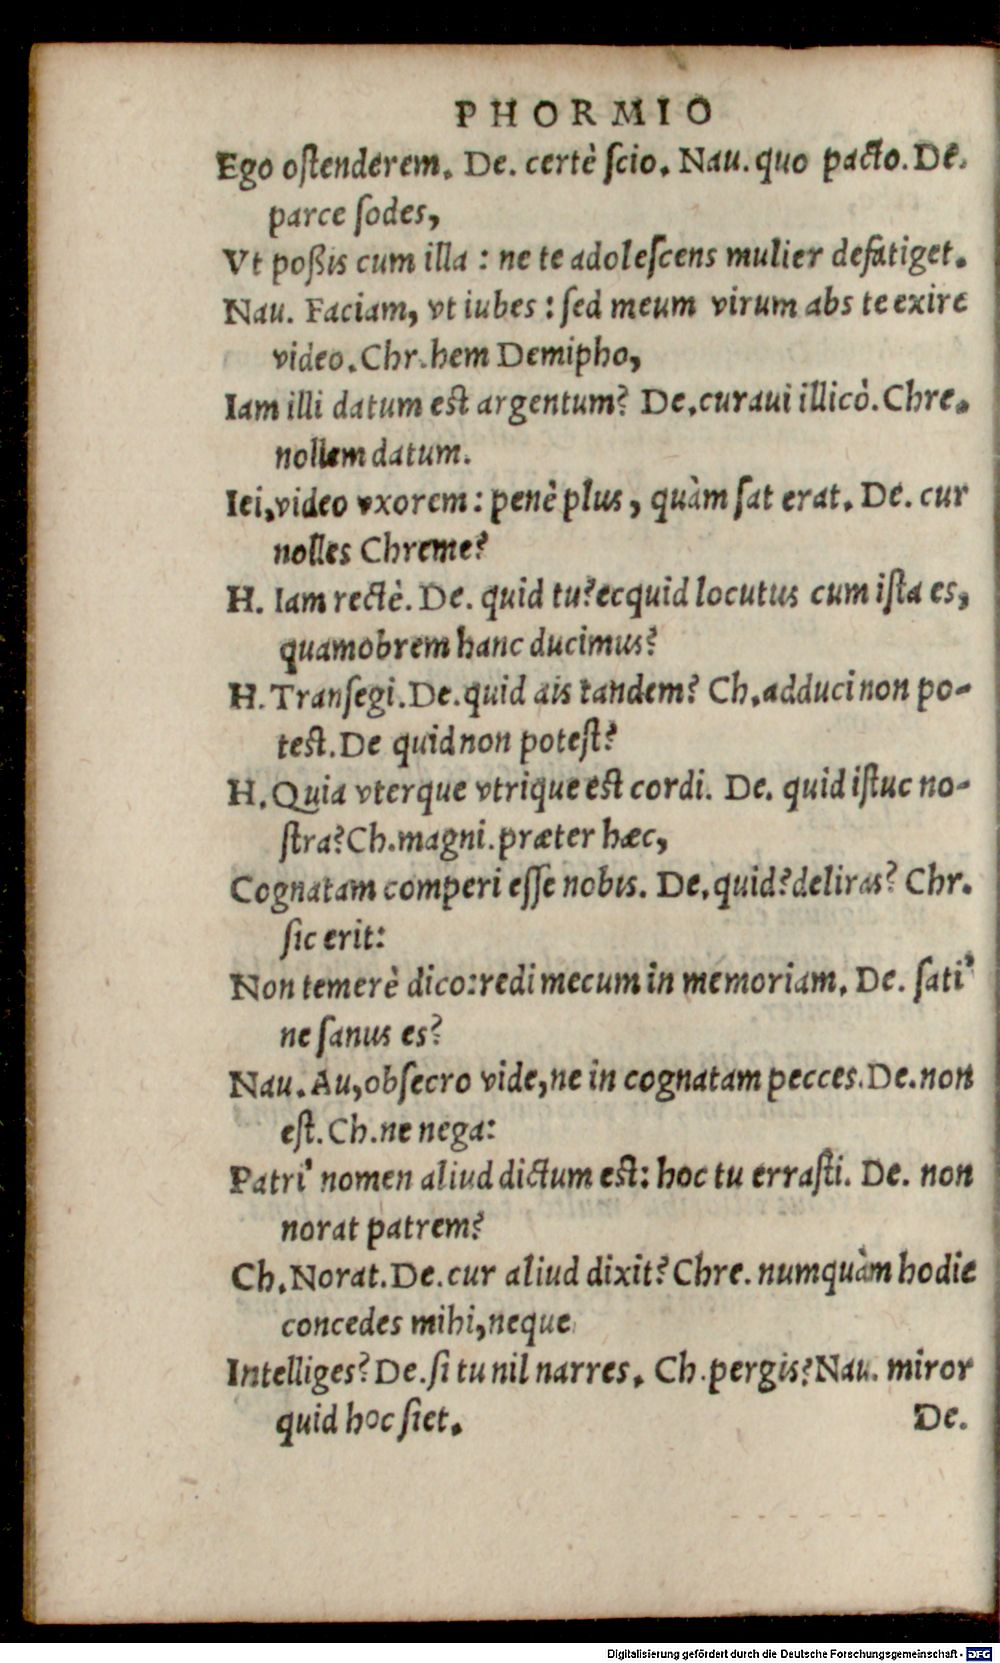 PHORMIO
Ego oſtenderem. De. certè ſcio. Nau. quo pacto. De.
parce ſodes,
Vt poßis cum illa : ne te adoleſcens mulier defatiget.
Nau. Faciam, vt iubes : ſed meum virum abs te exire
video. Chr. hem Demipho,
Iam illi datum est argentum? De. curaui illicò. Chre.
nollem datum.
Iei, video vxorem : penè plus, quàm ſat erat. De. cur
nolles Chreme?
H. Iam rectè. De. quid tu? ecquid locutus cum iſta es,
quamobrem hanc ducimus?
H. Tranſegi. De. quid ais tandem? Ch. adduci non po-
test. De quid non poteſt?
H. Quia vterque vtrique est cordi. De. quid iſtuc no-
ſtra? Ch. magni. præter hæc,
Cognatam comperi eſſe nobis. De. quid? deliras? Chr.
ſic erit:
Non temerè dico: redi mecum in memoriam. De. ſati'
ne ſanus es?
Nau. Au, obſecro vide, ne in cognatam pecces. De. non
eſt. Ch. ne nega:
Patri' nomen aliud dictum est: hoc tu erraſti. De. non
norat patrem?
Ch. Norat. De. cur aliud dixit? Chre. numquàm hodie
concedes mihi, neque
Intelliges? De. ſi tu nil narres. Ch. pergis? Nau. miror
quid hoc ſiet. De.
Digitalisierung gefördert durch die Deutsche Forschungsgemeinschaft - DFG